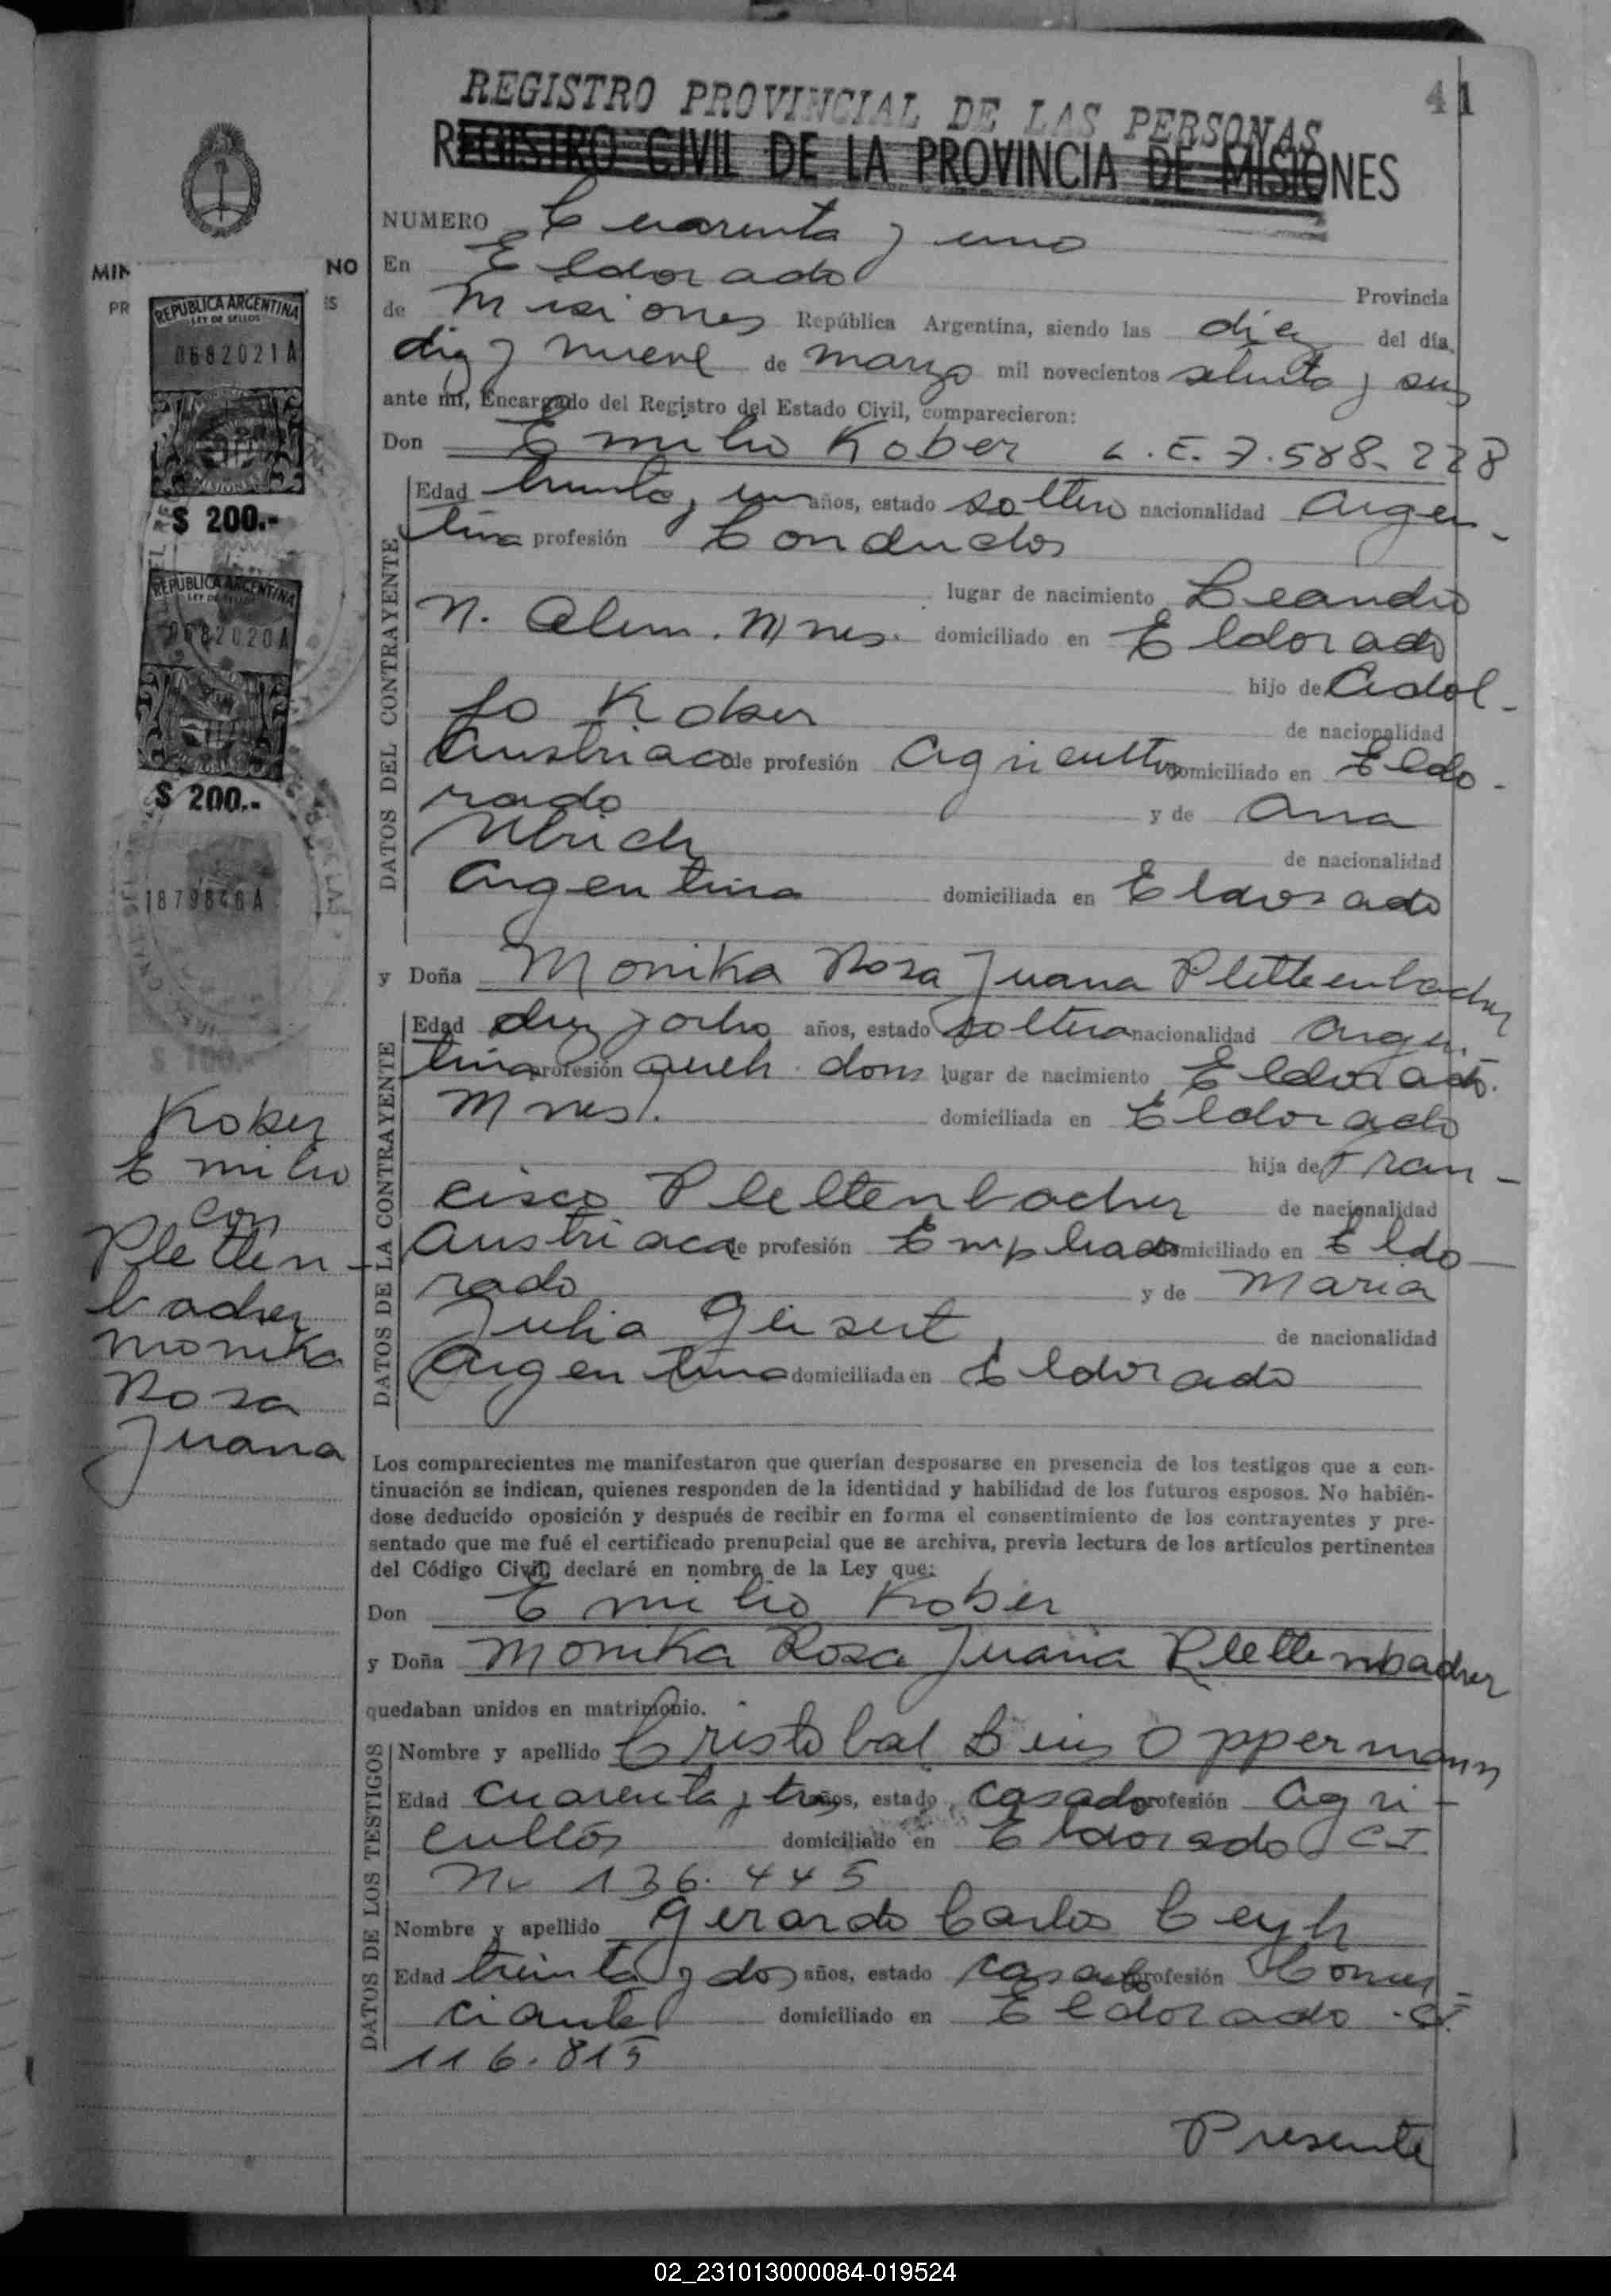 41
REGISTRO PROVINCIAL DE LAS PERSONAS
REGISTRO CIVIL DE LA PROVINCIA DE MISIONES
NUMERO Cuarenta y uno
En Eldorado Provincia
de Misiones República Argentina, siendo las diez del día
diez y nueve de marzo mil novecientos setenta y seis
ante mi, Encargado del Registro del Estado Civil, comparecieron:
Don Emilio Kober L.E. 7.588.228
Edad treinta y un años, estado soltero nacionalidad Argen-
tina profesión Conductor
lugar de nacimiento Leandro
N. Alem. Mnes. domiciliado en Eldorado
hijo de Adol-
fo Kober de nacionalidad
Austriaca de profesión Agricultor domiciliado en Eldo-
rado y de Ana
Ulrich de nacionalidad
Argentina domiciliada en Eldorado
DATOS DEL CONTRAYENTE
y Doña Monika Rosa Juana Plettenbacher
Edad diez y ocho años, estado soltera nacionalidad Argen-
tina profesión queh. dom. lugar de nacimiento Eldorado.
Mnes. domiciliada en Eldorado
hija de Fran-
cisco Plettenbacher de nacionalidad
Austriaca de profesión Empleado domiciliado en Eldo-
rado y de Maria
Julia de nacionalidad
Argentina domiciliada en Eldorado
DATOS DE LA CONTRAYENTE
Los comparecientes me manifestaron que querían desposarse en presencia de los testigos que a con-
tinuación se indican, quienes responden de la identidad y habilidad de los futuros esposos. No habién-
dose deducido oposición y después de recibir en forma el consentimiento de los contrayentes y pre-
sentado que me fué el certificado prenupcial que se archiva, previa lectura de los artículos pertinentes
del Código Civil, declaré en nombre de la Ley que:
Don Emilio Kober
y Doña Monika Rosa Juana Plettenbacher
quedaban unidos en matrimonio.
Nombre y apellido Cristobal Luis Oppermann
Edad Cuarenta y tres años, estado casado profesión Agri-
cultor domiciliado en Eldorado CI
No 136.445
Nombre y apellido Gerardo Carlos Ceyh
Edad treinta y dos años, estado casado profesión Comer-
ciante domiciliado en Eldorado - CI.
116.815
DATOS DE LOS TESTIGOS
Presente
MIN NO
PR ES
REPUBLICA ARGENTINA
LEY DE SELLOS
0682021A
MISIONES
$ 200.-
REPUBLICA ARGENTINA
LEY DE SELLOS
0682020A
$ 200.-
1879846A
$ 100.-
Kober
Emilio
con
Pletten-
bacher
Monika
Rosa
Juana
02_231013000084-019524